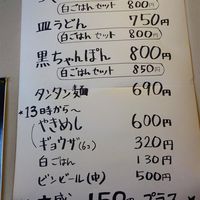 白ごはんセット 800円
皿うどん 750円
白ごはんセット 800円
黒ちゃんぽん 800円
白ごはんセット 850円
タンタン麺 690円
*13時から~
やきめし 600円
ギョウザ(6コ) 320円
白ごはん 130円
ビンビール(中) 500円
150円プラス